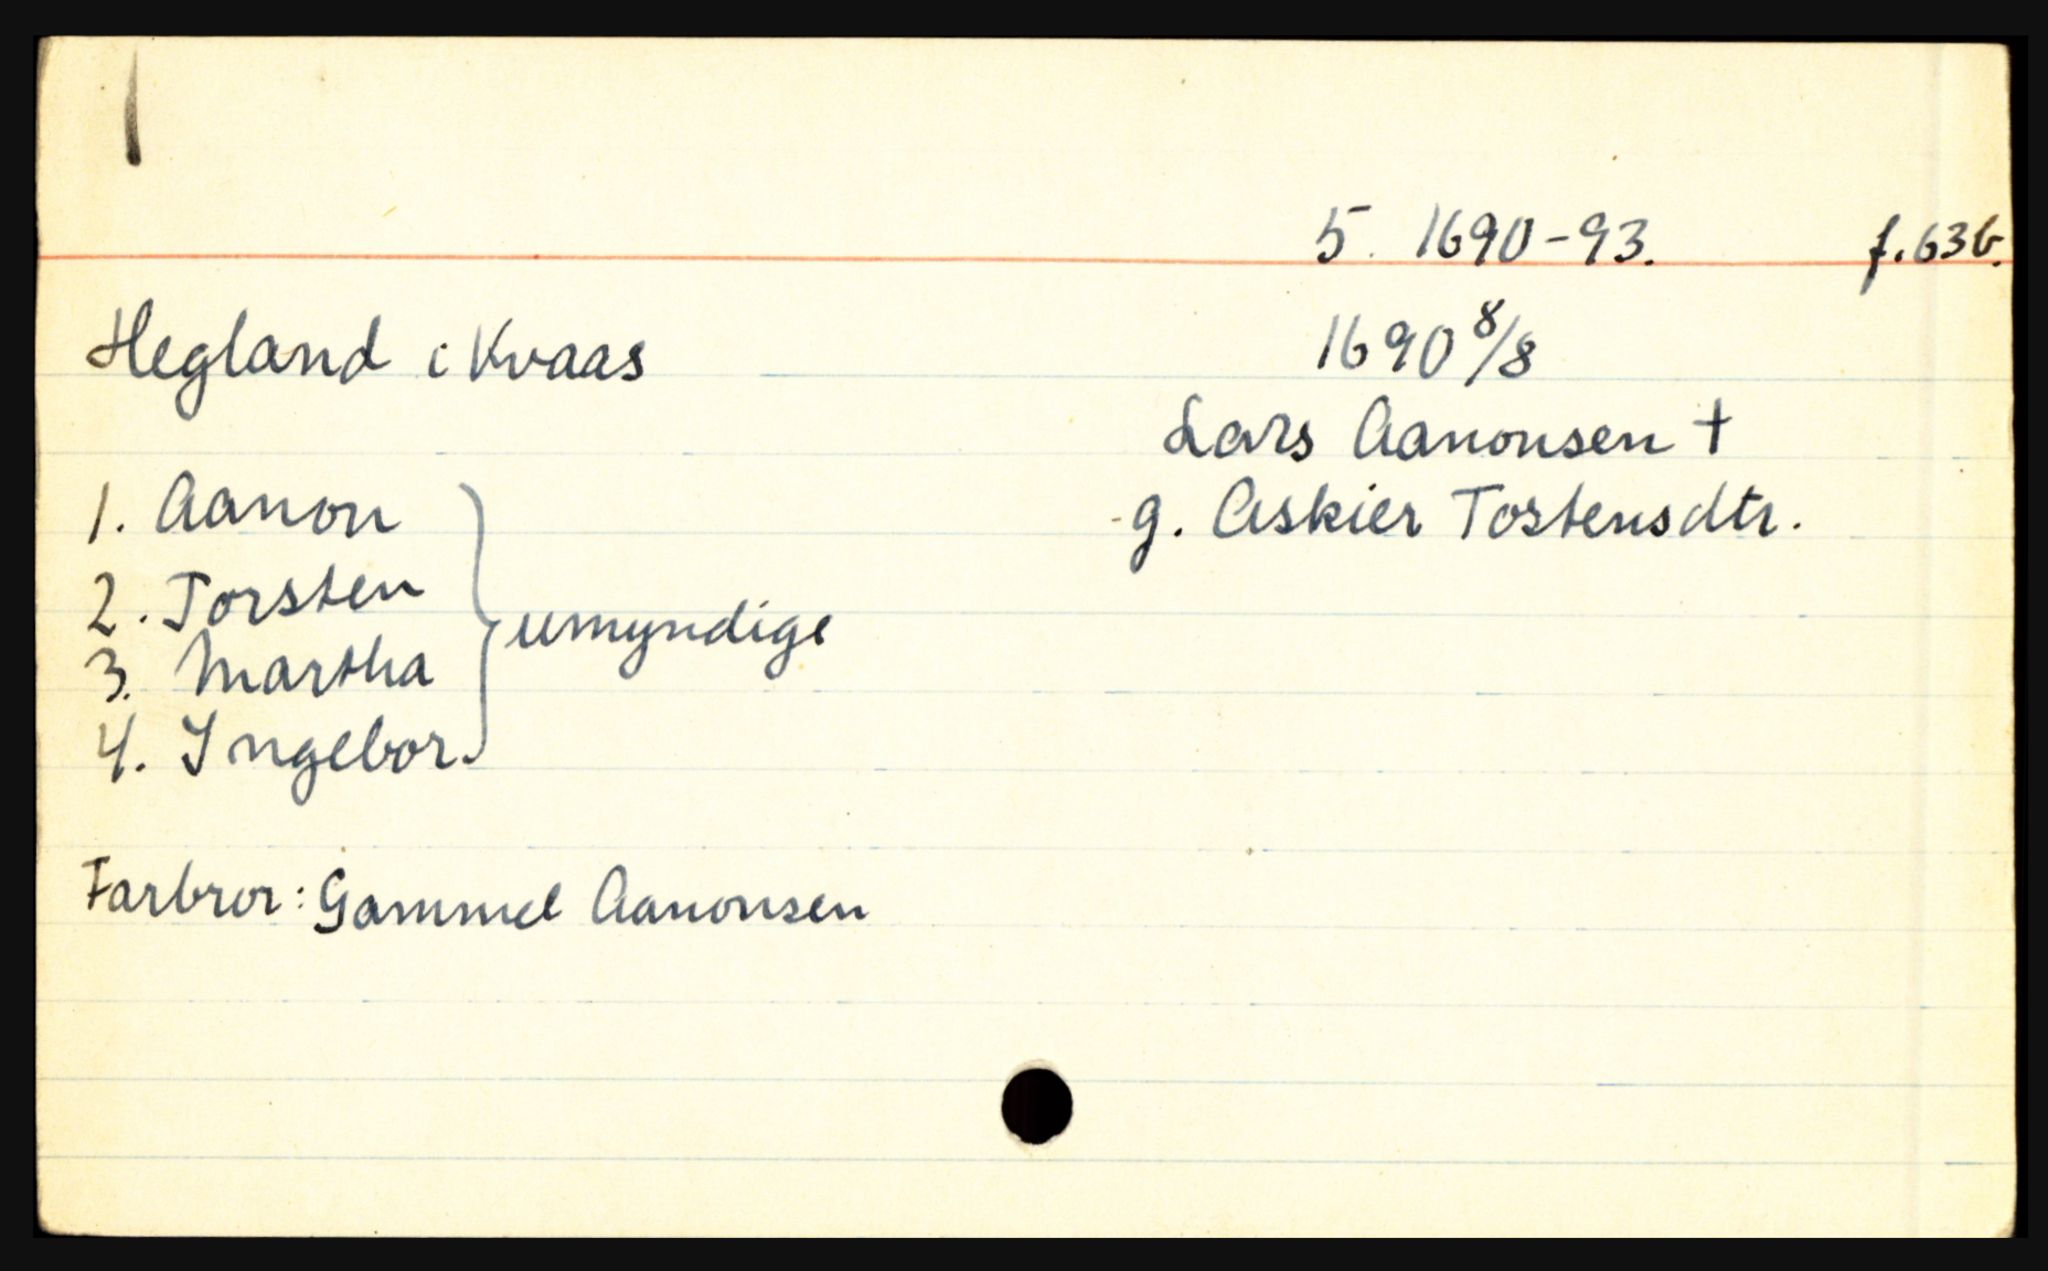 5. 1690-93. f. 63b.
Hegland i Kvaas 1690 8/8
Lars Aanonsen †
g. Askier Tostensdtr.
1. Aanon
2. Torsten
3. Martha
4. Ingebor.
umyndige
Farbror: Gammel Aanonsen